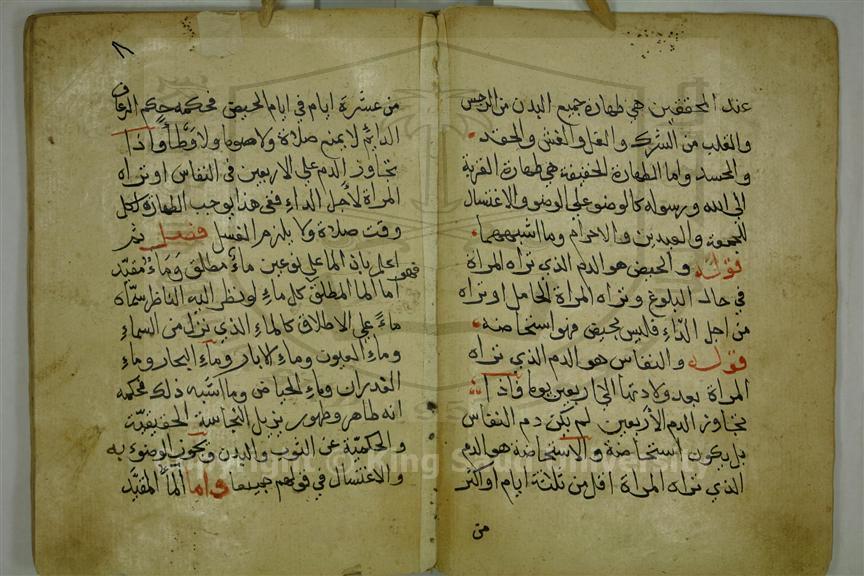 عند المحققين هي طهارة جميع البدن من الرجس
والقلب من الشرك والغل والغش والحقد
والحسد واما الطهارة الحقيقة هي طهارة القربة
الى الله ورسوله كالوضوء على الوضوء والاغتسال
للجمعة والعيدين والاحرام وما اشبههما
قوله والحيض هو الدم الذي تراه المراة
في حالة البلوغ وتراه المراة الحامل او تراه
من اجل الداء فليس بحيض فهو استحاضة
قوله والنفاس هو الدم الذي تراه
المراة بعد ولادتها الى اربعين يوما فاذا
تجاوز الدم الأربعين لم يكن دم النفاس
بل يكون استحاضة والاستحاضة هو الدم
الذي تراه المراة اقل من ثلثة ايام او اكثر
من
٨
من عشرة ايام في ايام الحيض فحكمه حكم الرعاف
الدائم لا يمنع صلاة ولا صوما ولا وطأ واذا
تجاوز الدم على الاربعين في النفاس او تراه
المراة لأجل الداء ففي هذا يوجب الطهارة لكل
وقت صلاة ولا يلزم الغسل فصل ثم
اعلم بان الما على نوعين ماء مطلق وماء مقيد
اما الما المطلق فهو كل ماء لو نظر اليه الناظر سماه
ماء على الاطلاق كالماء الذي نزل من السماء
وماء العيون وماء الابار وماء البحار وماء
الغدران وماء الحياض وما اشبه ذلك فحكمه
انه طاهر وطهور يزيل النجاسة الحقيقية
والحكمية عن الثوب والبدن ويجوز الوضوء به
والاغتسال في قولهم جميعا واما الما المقيد
Copyright © King Saud University
1957